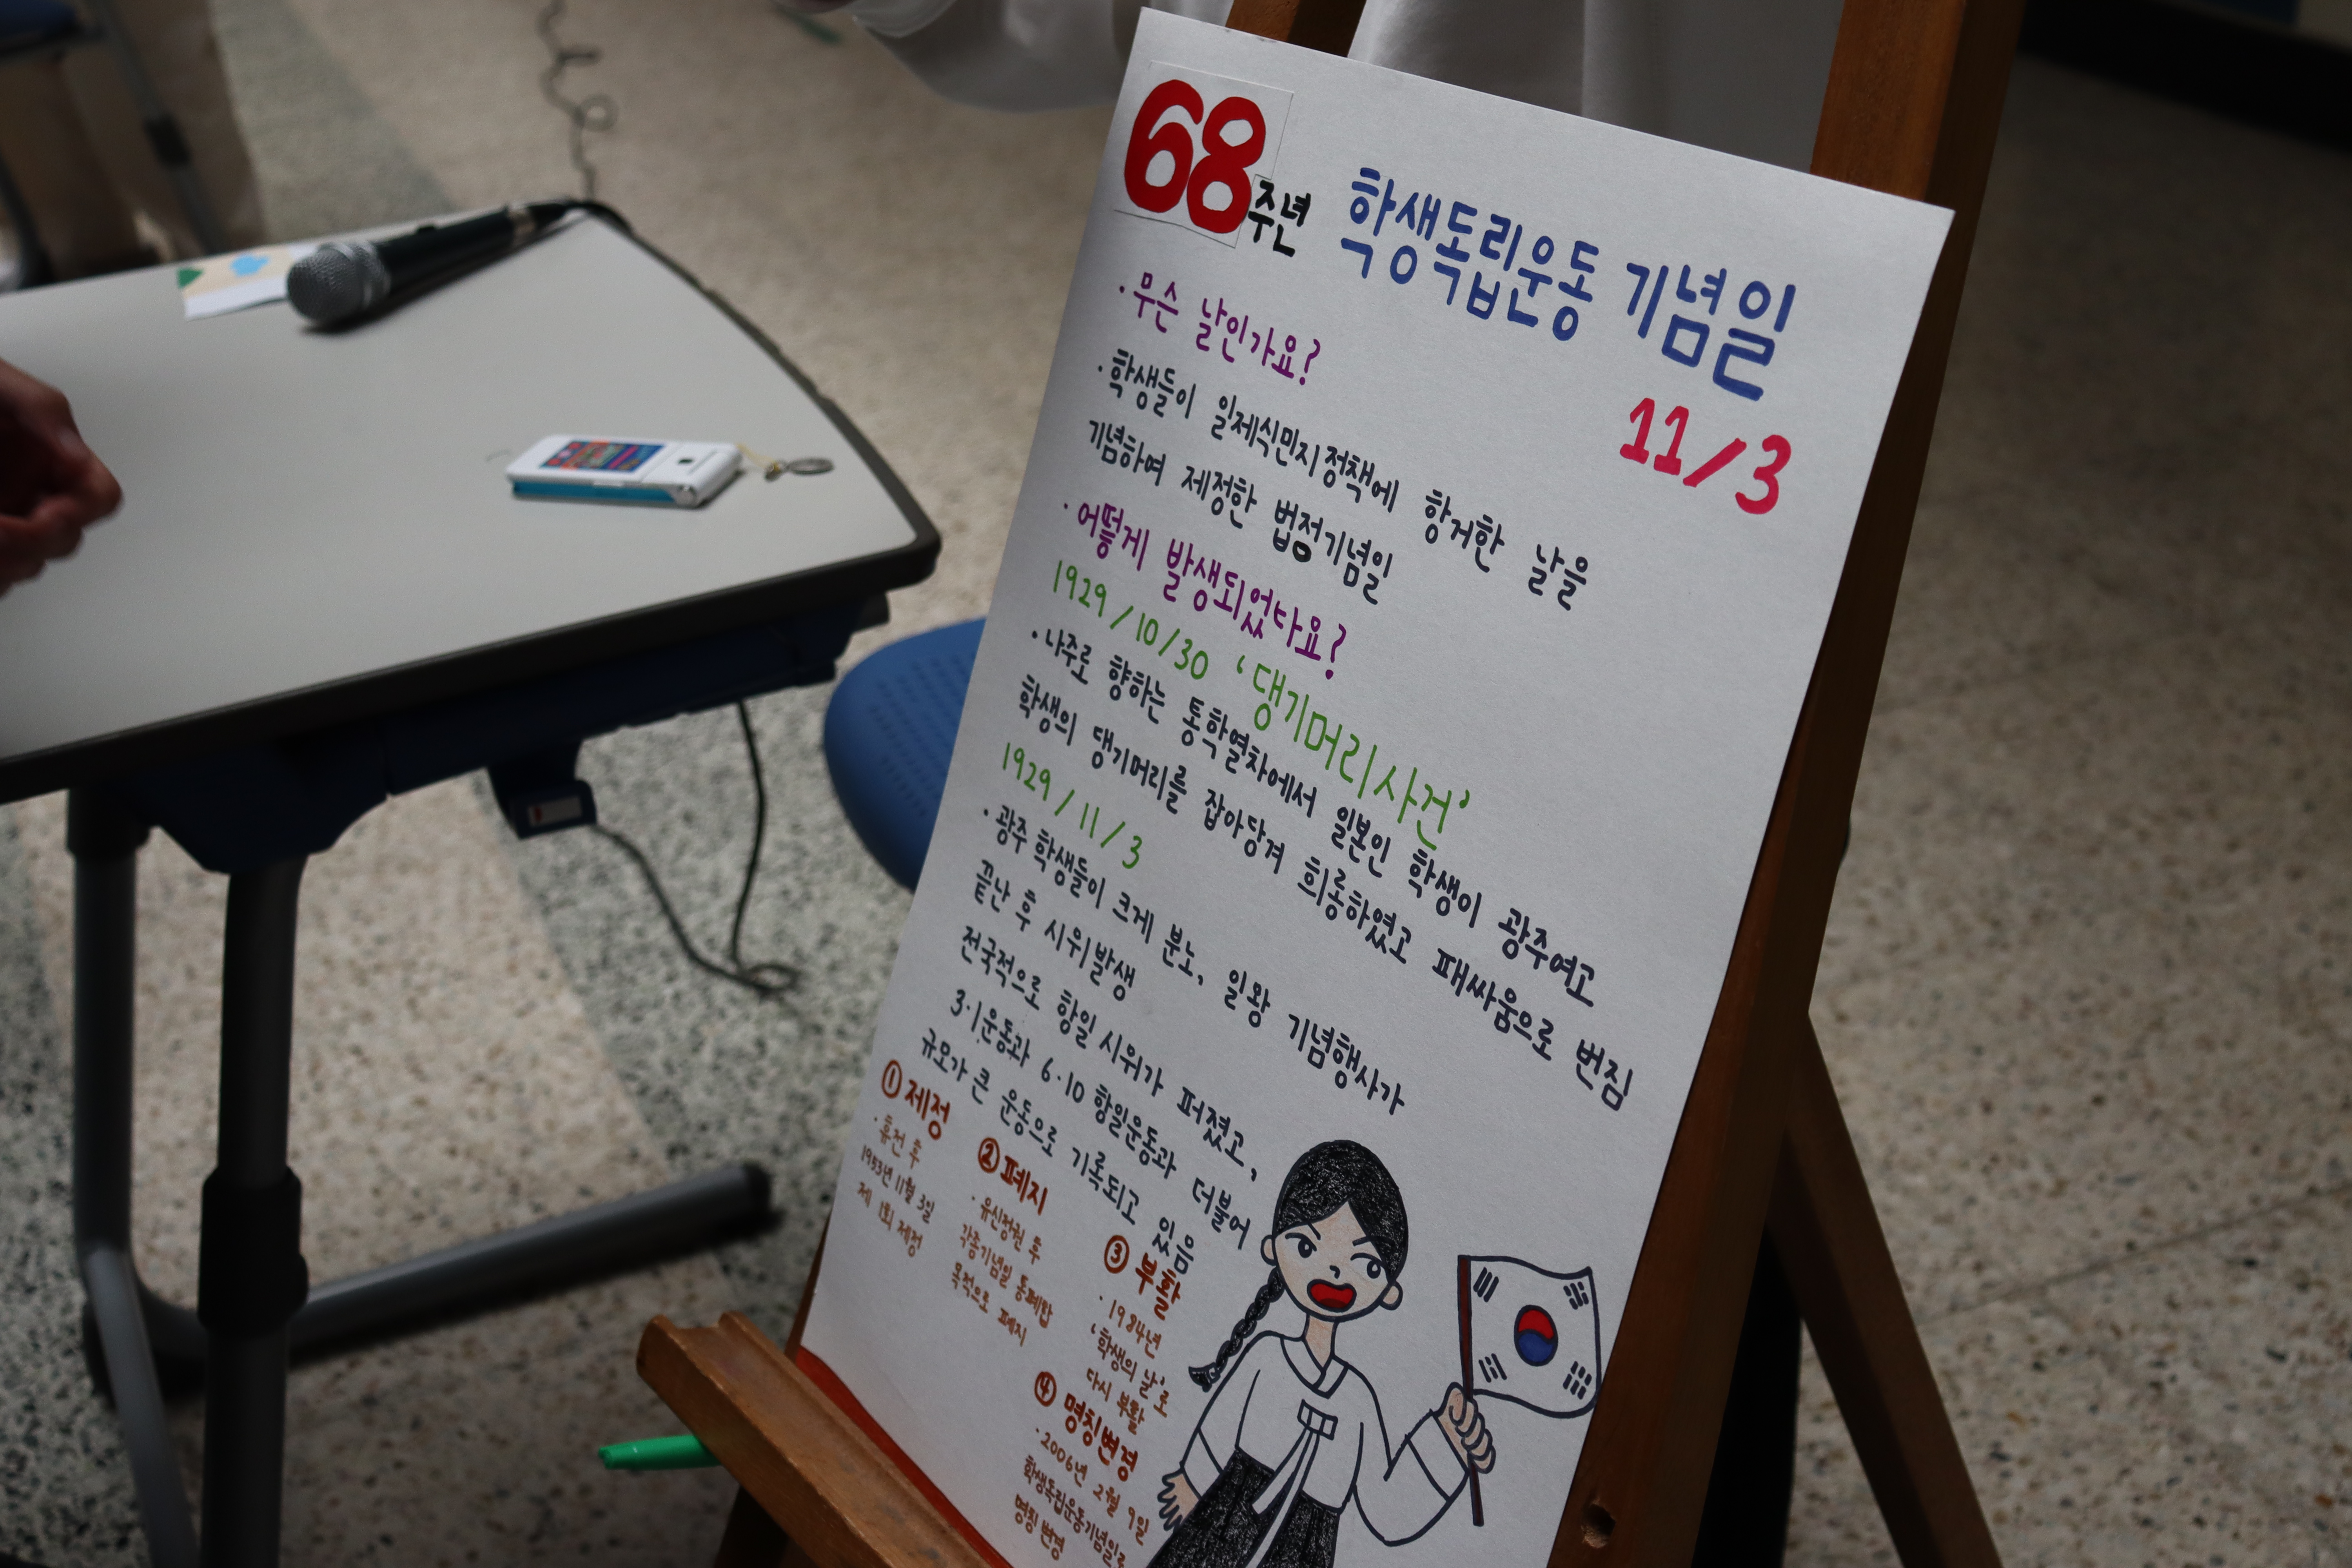 68주년 학생독립운동 기념일
11/3
· 무슨 날인가요?
· 학생들이 일제식민지정책에 항거한 날을
기념하여 제정한 법정기념일
· 어떻게 발생되었나요?
1929/10/30 '댕기머리사건'
· 나주로 향하는 통학열차에서 일본인 학생이 광주여고
학생의 댕기머리를 잡아당겨 희롱하였고 패싸움으로 번짐
1929/11/3
· 광주 학생들이 크게 분노, 일왕 기념행사가
끝난 후 시위발생
전국적으로 항일 시위가 퍼졌고,
3·1운동과 6·10 항일운동과 더불어
규모가 큰 운동으로 기록되고 있음
① 제정
· 휴전 후
1953년 11월 3일
제 1회 제정
② 폐지
· 유신정권 후
각종기념일 통폐합
목적으로 폐지
③ 부활
· 1984년
'학생의 날'로
다시 부활
④ 명칭변경
· 2006년 2월 9일
학생독립운동기념일로
명칭 변경